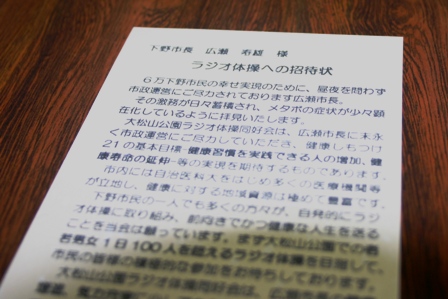 下野市長　広瀬　寿雄　様
ラジオ体操への招待状
６万下野市民の幸せ実現のために、昼夜を問わず
市政運営にご尽力されております広瀬市長。
その激務が日々蓄積され、メタボの症状が少々顕
在化しているように拝見いたします。
大松山公園ラジオ体操同好会は、広瀬市長に末永
く市政運営にご尽力していただき、健康しもつけ
２１の基本目標-健康習慣を実践できる人の増加、健
康寿命の延伸-等の実現を期待するものであります。
市内には自治医科大をはじめ多くの医療機関等
が立地し、健康に対する地域資源は極めて豊富です。
下野市民の一人でも多くの方々が、自発的にラジ
オ体操に取り組み、前向きでかつ健康な人生を送る
ことを当会は願っています。まず大松山公園での老
若男女１日１００人を超えるラジオ体操を目指して、
市民の皆様の積極的な参加をお待ちしております。
大松山公園ラジオ体操同好会は、広瀬市長の